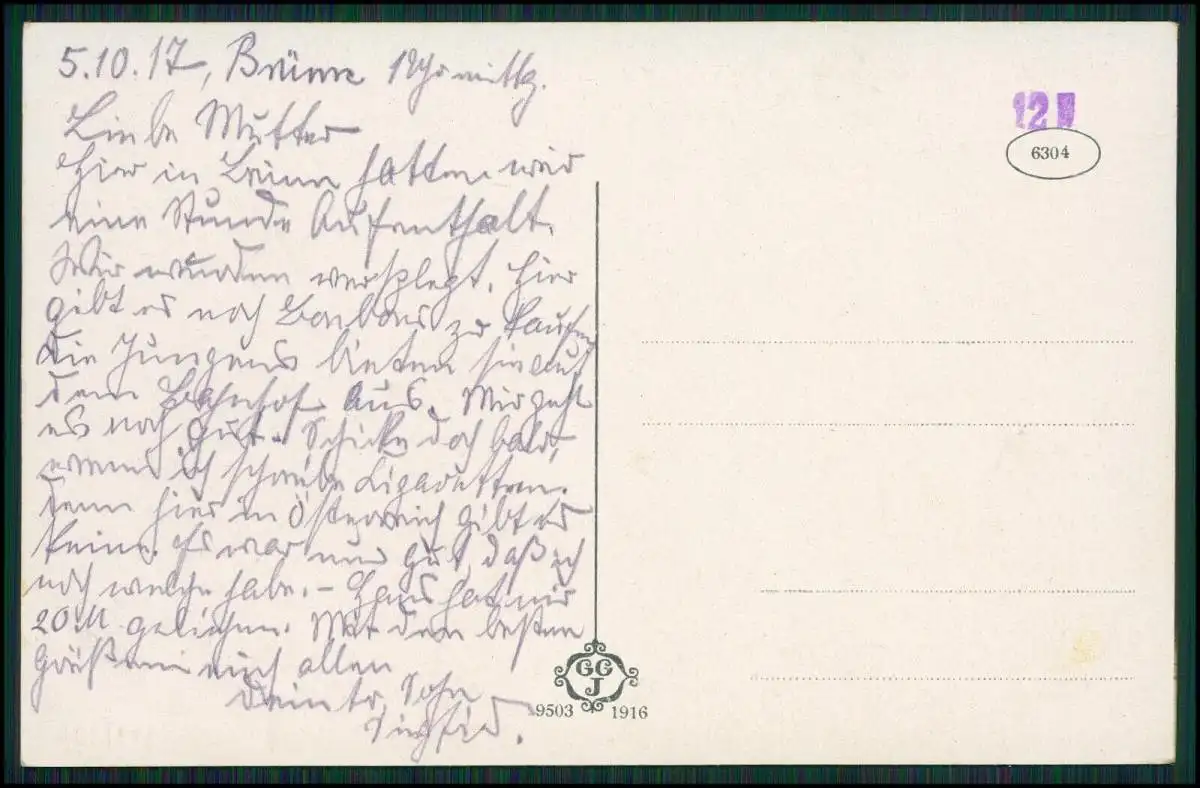 5.10.17, Brünn 1 Uhr mittg.
Liebe Mutter
Hier in Brünn hatten wir
eine Stunde Aufenthalt.
Wir wurden verpflegt. Hier
gibt es noch Bonbons zu kaufen
Die Jungens bieten sie auf
dem Bahnhof aus. Mir geht
es noch gut. Schicke doch bald,
wenn ich schreibe Zigaretten.
Denn hier in Österreich gibt es
keine. Es war nur gut, daß ich
noch welche habe. – Hans hat mir
20 M. geliehen. Mit den besten
Grüßen euch allen
Dein tr. Sohn
Siegfried.
12
6304
GG
J
9503 1916